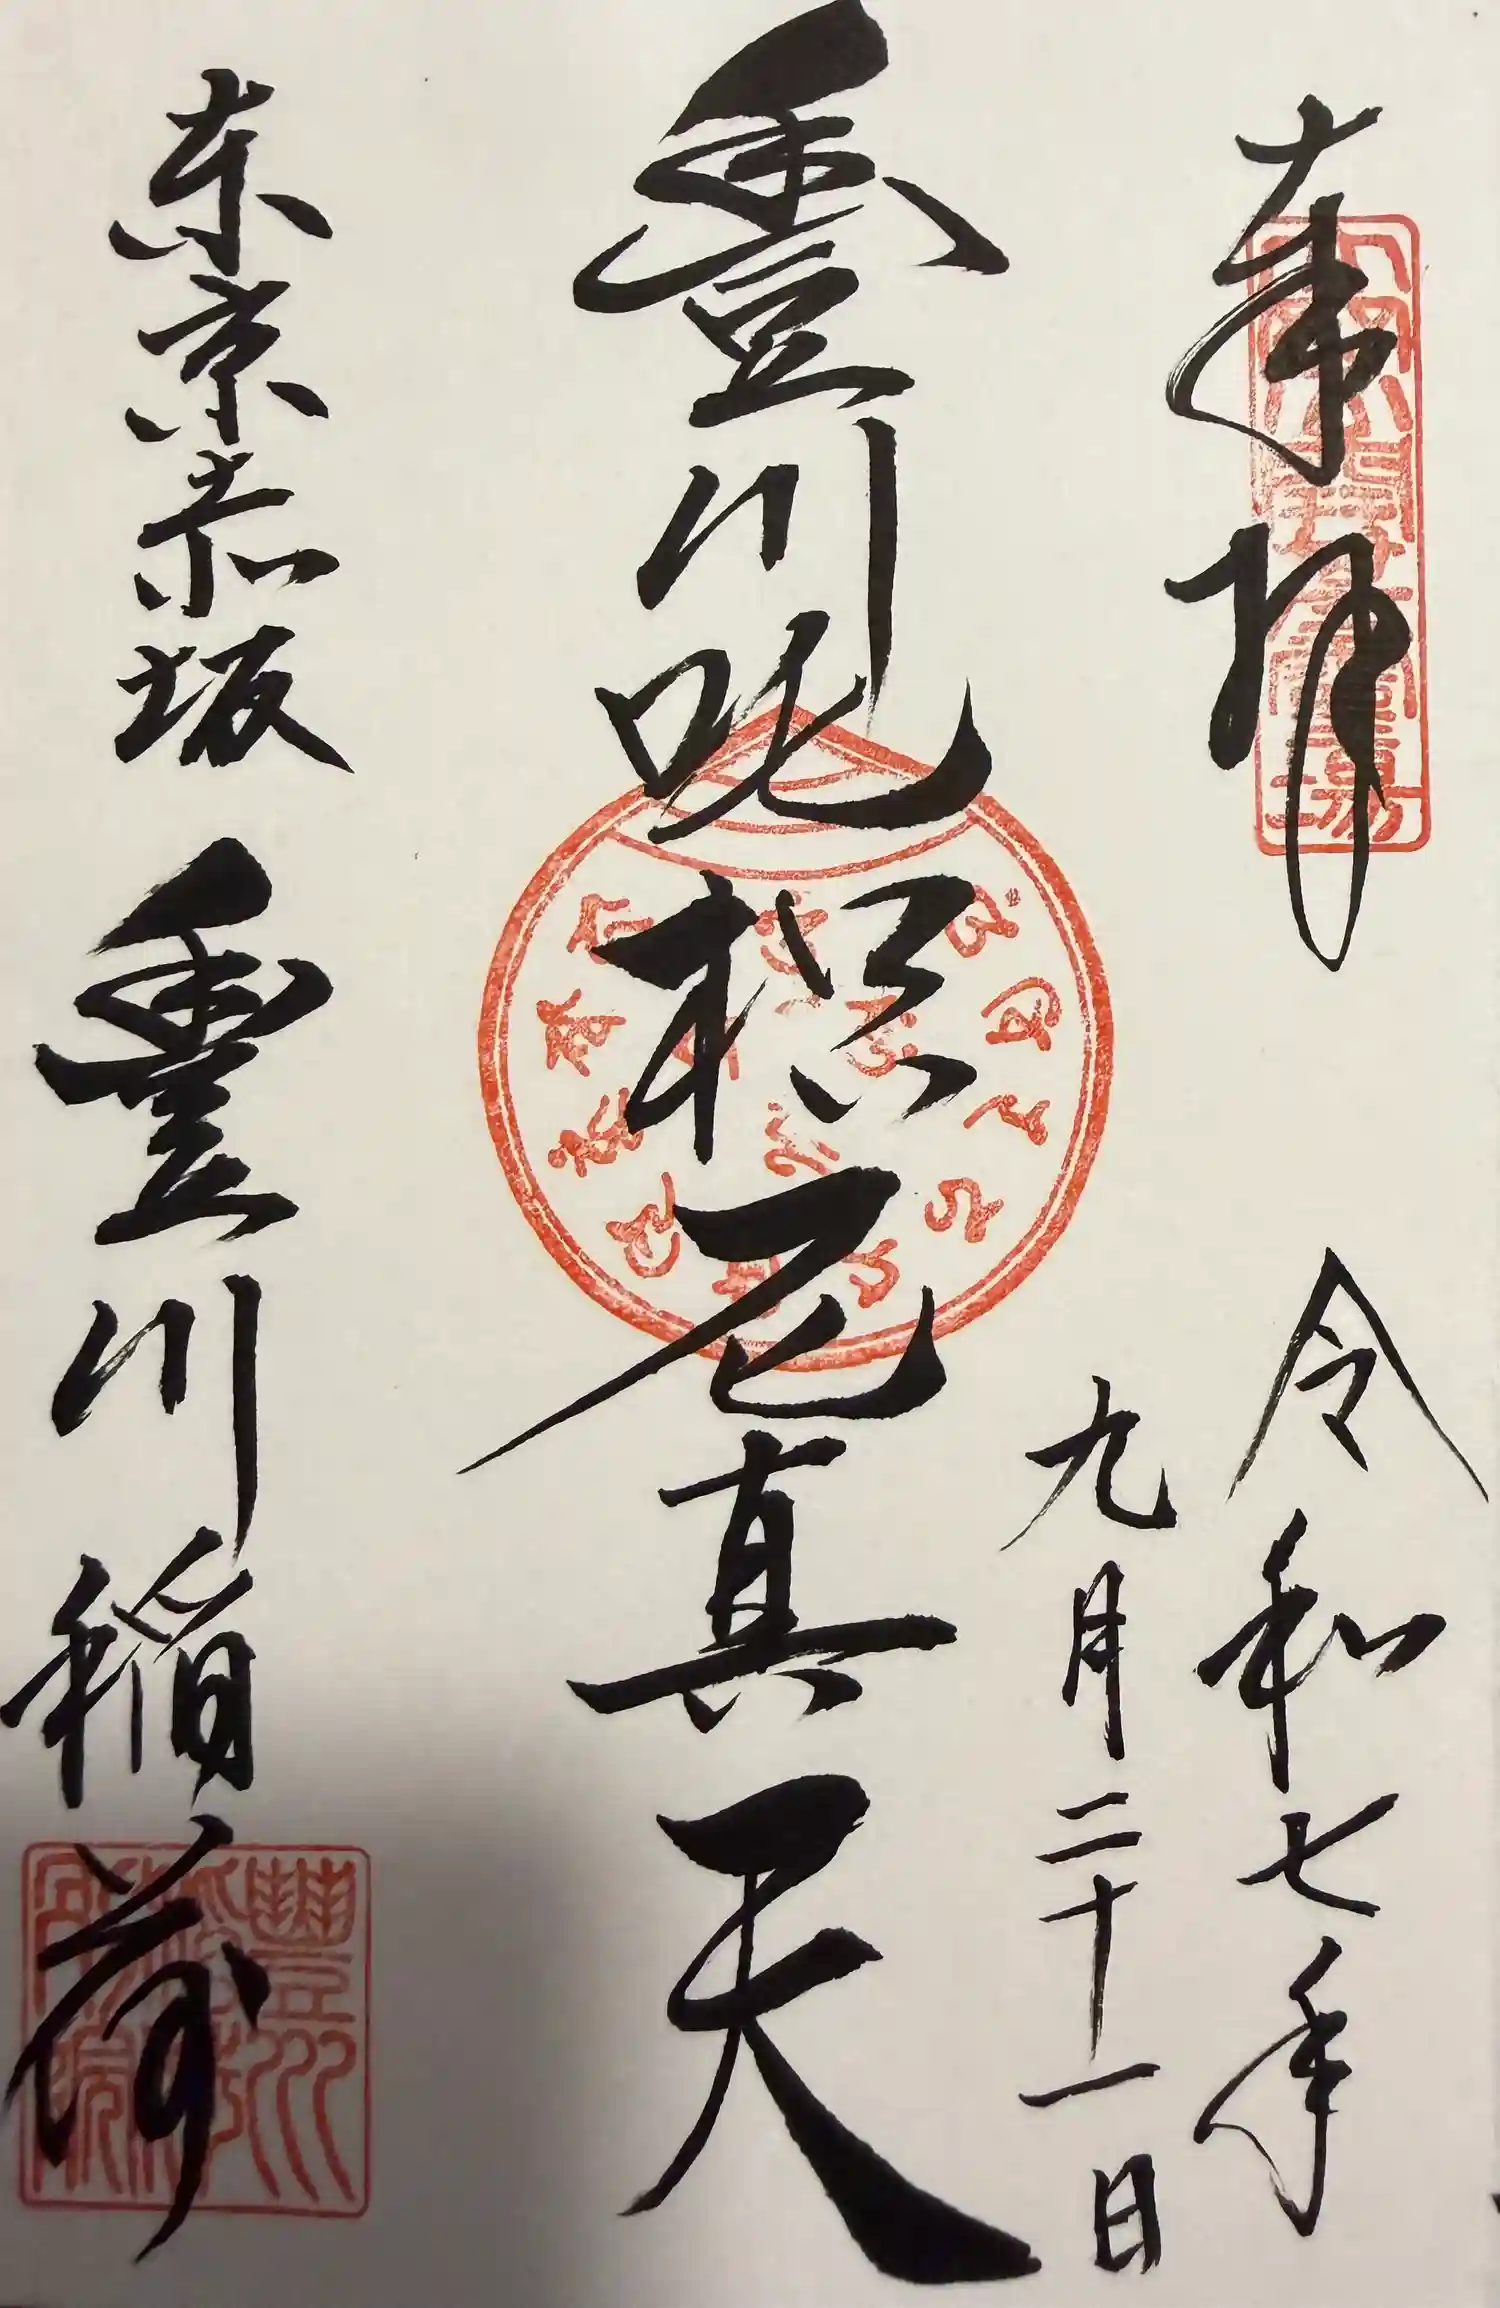 奉拝
令和七年
九月二十一日
豊川吒枳尼真天
東京赤坂 豊川稲荷